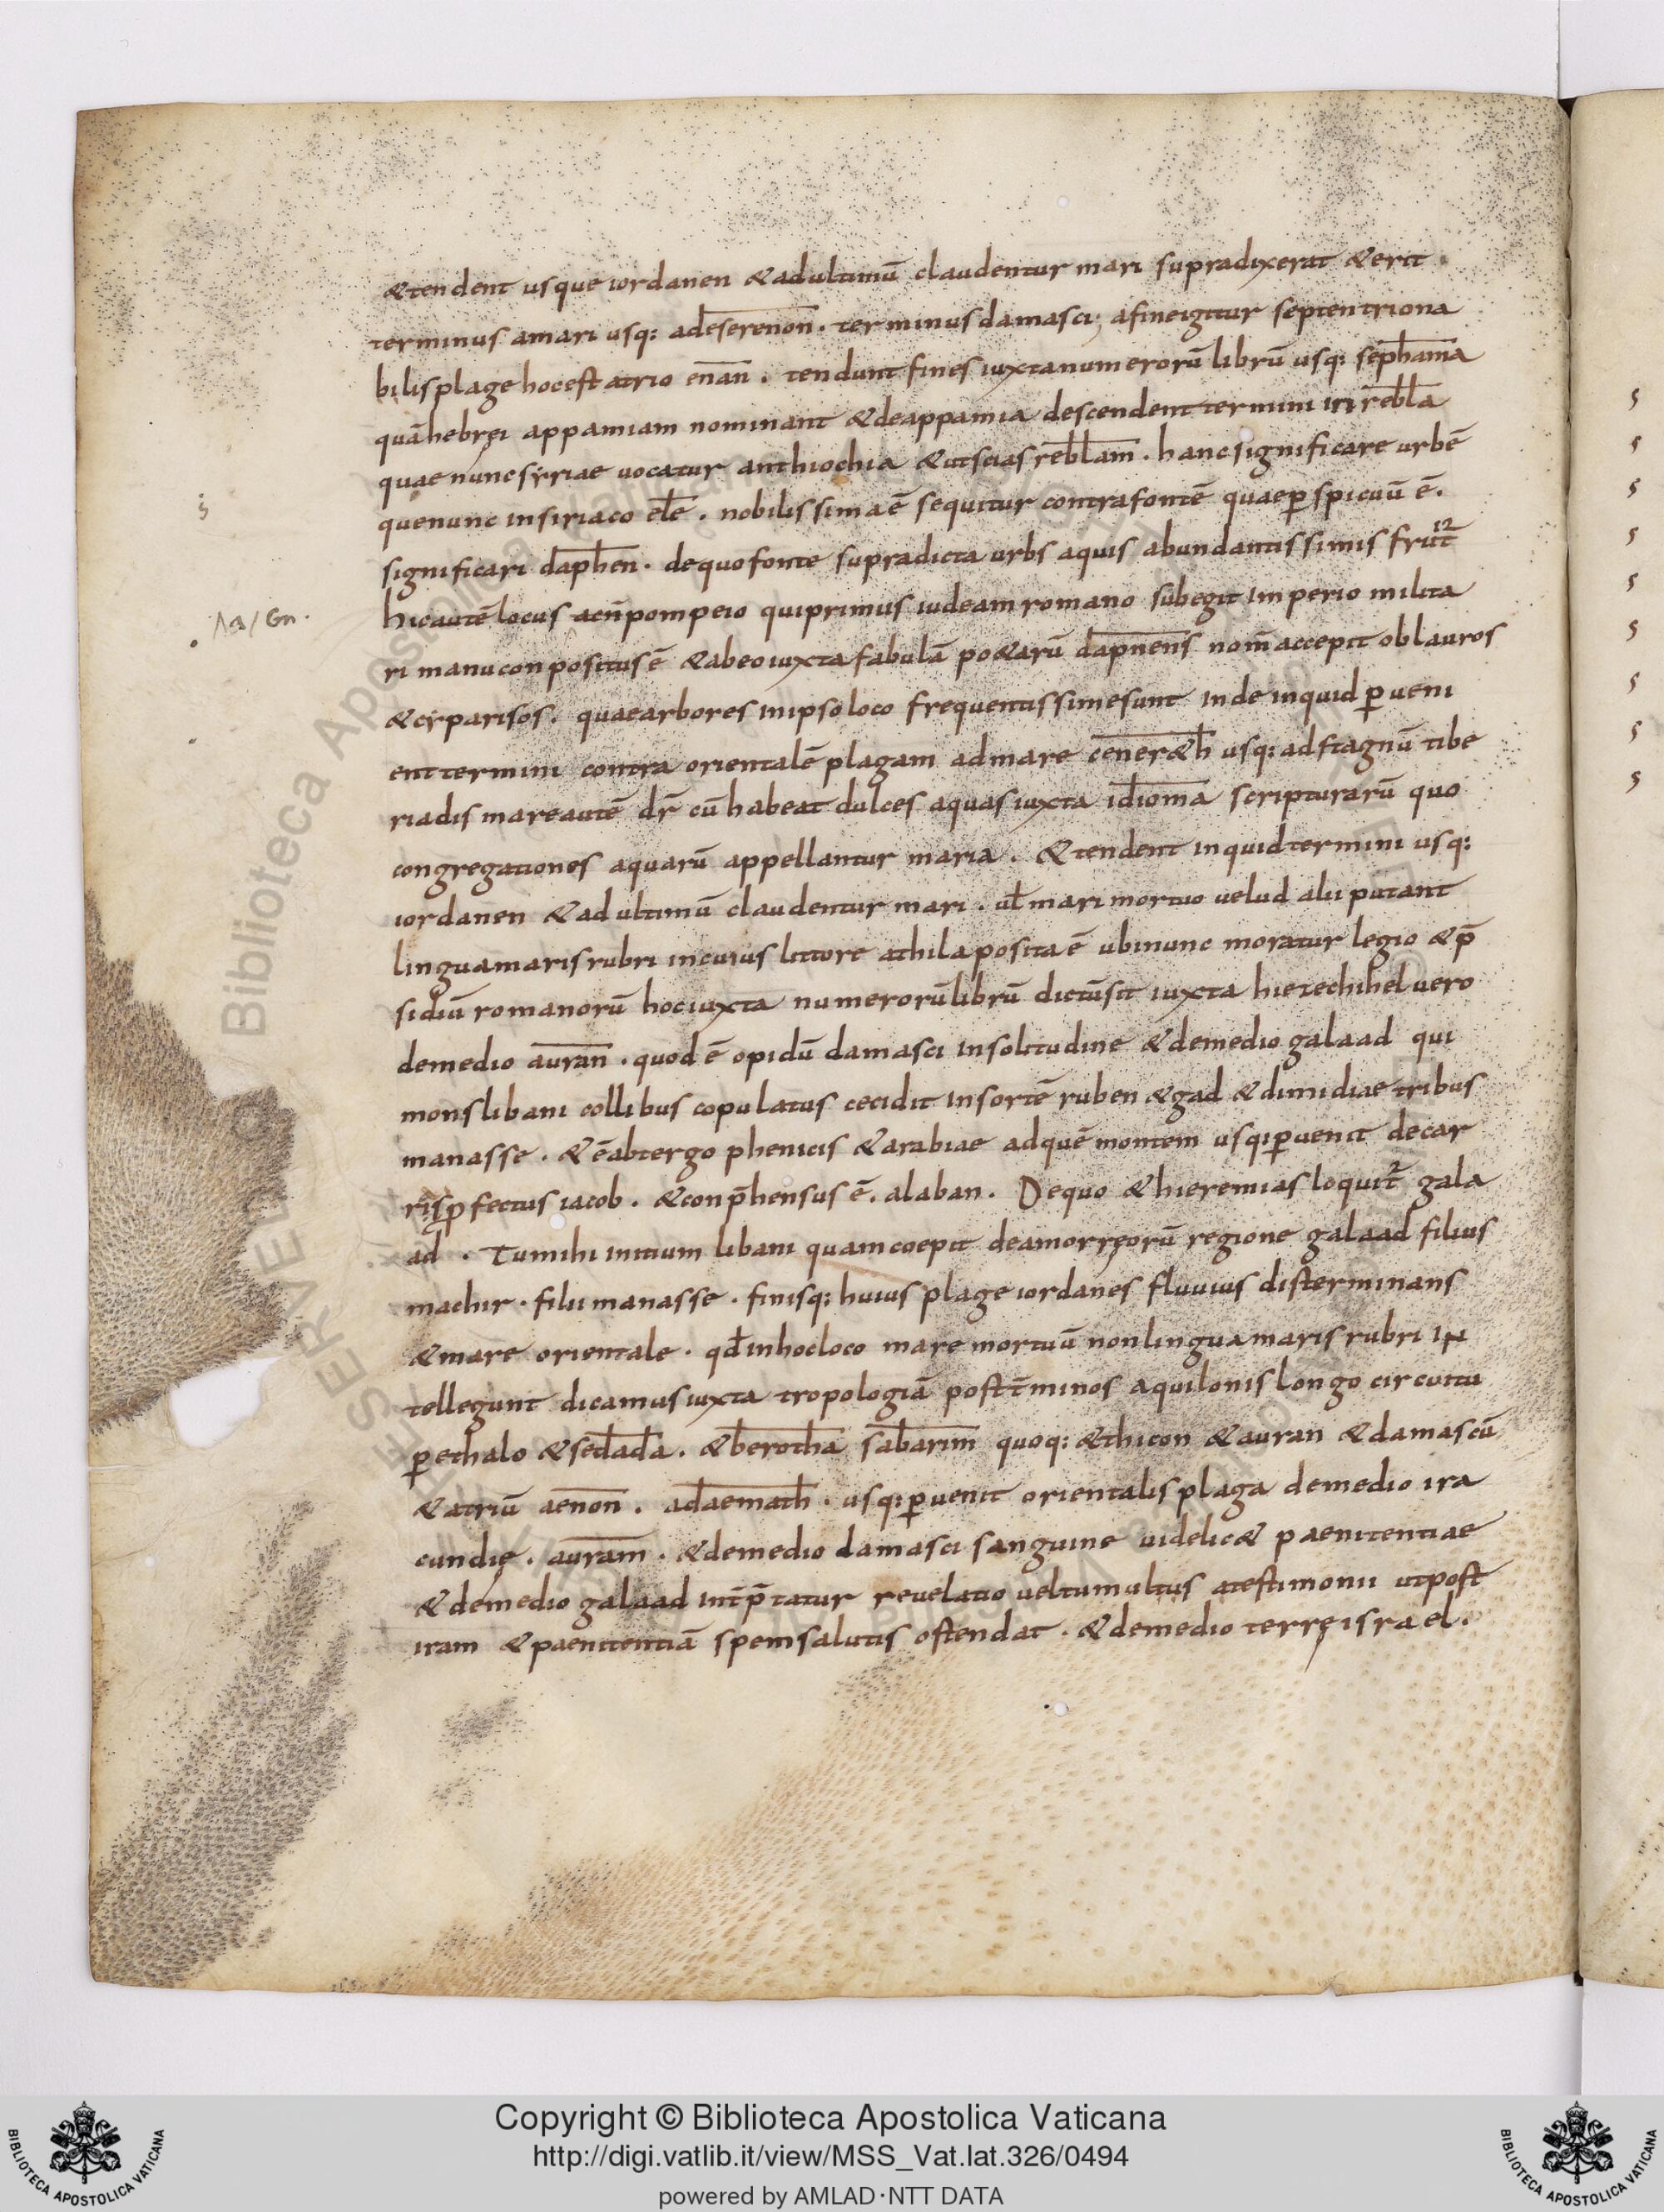 &tendent usque iordanen &adultimū claudentur mari supradixerat &erit
terminus amari usq: adeserenon. terminus damasci; afineigitur septentriona
bilis plage hocest atrio enan. tendunt fines iuxta numerorū librū usq: sephama
quā hebręi appamiam nominant &deappamia descendent termini in rebla
quae nunc syriae uocatur anthiochia &utscias reblam. hanc significare urbē
quenunc insiriaco ele. nobilissima ē sequitur contrafontē quaeꝑspicuū ē.
significari daphen. dequofonte supradicta urbs aquis abundantissimis fruit
hicautē locus acn̄pompeio quiprimus iudeam romano subegit imperio milita
ri manu conpositus ē &abeo iuxta fabulā po&arū dapnens nom̄ accepit oblauros
&cyparisos. quaearbores inipso loco frequentissimesunt inde inquid ꝑueni
ent termini contra orientalē plagam admare cener&h usq: adstagnū tibe
riadis mareautē dr̄ cū habeat dulces aquas iuxta idioma scripturarū quo
congregationes aquarū appellantur maria. &tendent inquid termini usq:
iordanen &adultimū claudentur mari. ul̄ mari mortuo uelud alii putant
linguamaris rubri incuius littore athila posita ē ubinunc moratur legio &p̄
sidiū romanorū hociuxta numerorū librū dictūsit iuxta hiezechihel uero
demedio auran. quod ē opidū damasci insolitudine &demedio galaad qui
mons libani collibus copulatus cecidit insortē ruben &gad &dimidiae tribus
manasse. &ē abtergo phenicis &arabiae adquē montem usq:ꝑuenit decar
ris ꝓfectus iacob. &conp̄hensus ē. alaban. Dequo &hieremias loquit̄ gala
ad. Tumihi initium libani quam coepit deamorręorū regione galaad filius
machir. filii manasse. finisq: huius plage iordanes fluuius disterminans
&mare orientale. qd̄ inhocloco mare mortuū nonlingua maris rubri in
tellegunt dicamus iuxta tropologiā postt̄minos aquilonis longo circuitu
ꝑ ethalo &sedada. &berotha sabarim quoq: &thicon &auran &damascū
&atriū aenon. adaemath. usq:ꝑuenit orientalis plaga demedio ira
cundię. auram. &demedio damasci sanguine uidelic& paenitentiae
&demedio galaad int̄p̄tatur reuelatio ueltumultus atestimonii utpost
iram &paenitentiā spemsalutis ostendat. &demedio terrę israel.
Copyright © Biblioteca Apostolica Vaticana
http://digi.vatlib.it/view/MSS_Vat.lat.326/0494
powered by AMLAD·NTT DATA
BIBLIOTECA APOSTOLICA VATICANA
BIBLIOTECA APOSTOLICA VATICANA